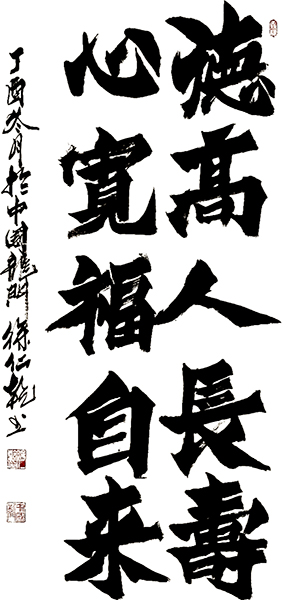 德高人長壽
心寬福自来
丁酉冬月於中國龍門徐仁乾书